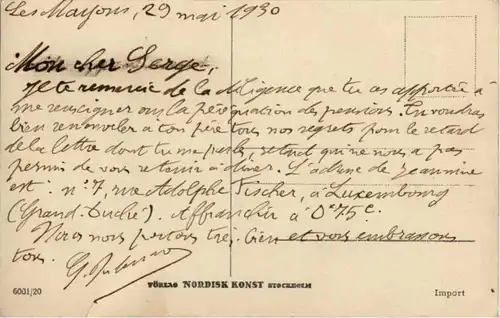 Les Mayons, 29 mai 1930
Mon cher Serge,
Je te remercie de la diligence que tu as apportée à
me renseigner sur la péréquation des pensions. Tu voudras
bien renouveler à ton père tous nos regrets pour le retard
de la lettre dont tu me parles, retard qui ne nous a pas
permis de vous retenir à dîner. L'adresse de Jeannine
est : n° 7, rue Adolphe Fischer, à Luxembourg
(Grand-Duché). Affranchir à 0f 75c.
Nous nous portons très bien et vous embrassons
tous.
FÖRLAG NORDISK KONST STOCKHOLM
6001/20
Import